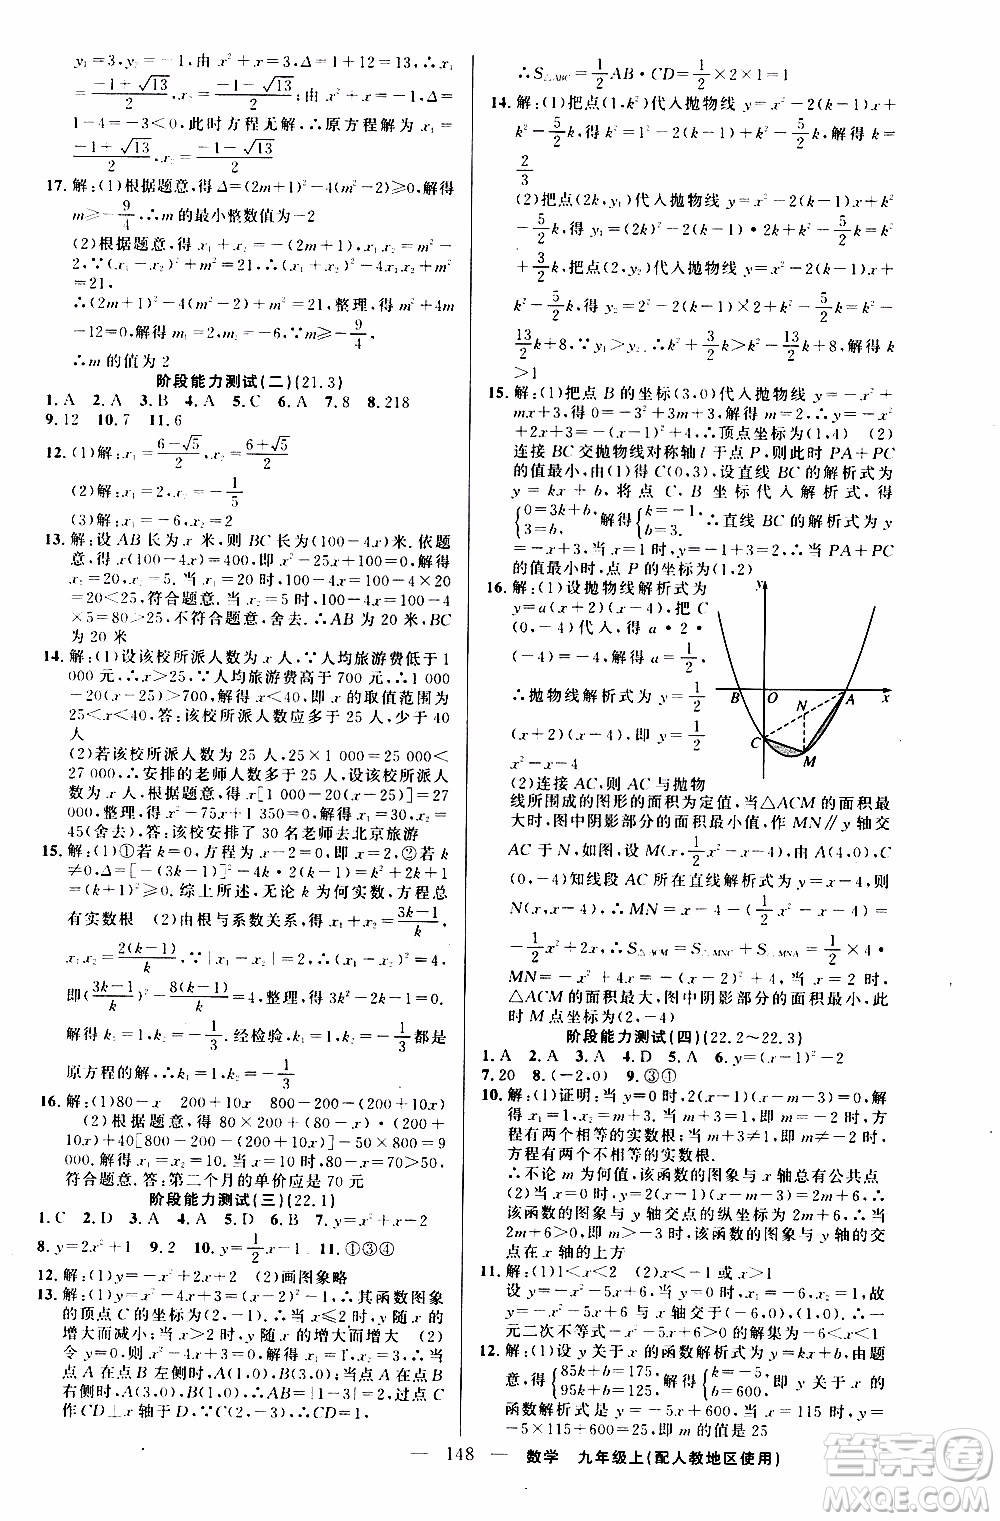 y₁=3,y₂=1,由 x²+x=3,Δ=1+12=13,∴x₁
=(-1+√13)/2,x₂=(-1-√13)/2;由 x²+x=1,Δ=
1-4=-3<0,此时方程无解,∴原方程解为 x₁=
(-1+√13)/2,x₂=(-1-√13)/2
17.解:(1)根据题意,得 Δ=(2m+1)²-4(m²-2)≥0,解得
m≥-9/4,∴m 的最小整数值为-2
(2)根据题意,得 x₁+x₂=-(2m+1),x₁x₂=m²-
2,∵(x₁-x₂)²+m²=21,∴(x₁+x₂)²-4x₁x₂+m²
=21,
∴(2m+1)²-4(m²-2)+m²=21,整理,得 m²+4m
-12=0,解得 m₁=2,m₂=-6,∵m≥-9/4,
∴m 的值为 2
阶段能力测试(二)(21.3)
1.A 2.A 3.B 4.A 5.C 6.A 7.8 8.218
9.12 10.7 11.6
12.(1)解:x₁=(6-√5)/2,x₂=(6+√5)/2
(2)解:x₁=2,x₂=-1/5
(3)解:x₁=-6,x₂=2
13.解:设 AB 长为 x 米,则 BC 长为(100-4x)米.依题
意,得(100-4x)x=400,即 x²-25x+100=0,解得
x₁=20,x₂=5.当 x₁=20 时,100-4x=100-4×20
=20>25,符合题意.当 x₂=5 时,100-4x=100-4
×5=80>25,不符合题意,舍去.∴AB 为 20 米,BC
为 20 米
14.解:(1)设该校所派人数为 x 人,∵人均旅游费低于 1
000 元,∴x>25,∵人均旅游费高于 700 元,∴1 000
-20(x-25)>700,解得 x<40,即 x 的取值范围为
25<x<40,答:该校所派人数应多于 25 人,少于 40
人
(2)若该校所派人数为 25 人,25×1 000=25 000<
27 000,∴安排的老师人数多于 25 人,设该校所派人
数为 x 人,根据题意,得 x[1 000-20(x-25)]=27
000,整理,得 x²-75x+1350=0,解得 x₁=30,x₂=
45(舍去),答:该校安排了 30 名老师去北京旅游
15.解:(1)①若 k=0,方程为 x-2=0,则 x=2,②若 k
≠0,Δ=[-(3k-1)]²-4k·2(k-1)=k²+2k+1=
(k+1)²≥0.综上所述,无论 k 为何实数,方程总
有实数根 (2)由根与系数关系,得 x₁+x₂=(3k-1)/k,
x₁x₂=2(k-1)/k,∵|x₁-x₂|=2,∴(x₁-x₂)²=4,
即((3k-1)/k)²-8(k-1)/k=4,整理,得 3k²-2k-1=0.
解得 k₁=1,k₂=-1/3.经检验,k₁=1,k₂=-1/3都是
原方程的解,∴k₁=1,k₂=-1/3
16.解:(1)80-x 200+10x 800-200-(200+10x)
(2)根据题意,得80×200+(80-x)(200+
10x)+40[800-200-(200+10x)]-50×800=9
000,整理,得 x²-20x+100=0,解得 x₁=x₂=10,符
合题意.答:第二个月的单价应是 70 元
阶段能力测试(三)(22.1)
1.C 2.D 3.A 4.A 5.D 6.D 7.y=x²+4x-2
8.y=2x²+1 9.2 10.y=1/2x²-1 11.①③④
12.解:(1)y=-x²+2x+2 (2)画图象略
13.解:(1)y=x²-4x+3=(x-2)²-1,∴其函数图象
的顶点 C 的坐标为(2,-1),∴当 x≤2 时,y 随 x 的
增大而减小;当 x>2 时,y 随 x 的增大而增大 (2)
令 y=0,则 x²-4x+3=0,解得 x₁=1,x₂=3,∴当
点 A 在点 B 左侧时,A(1,0),B(3,0);当点 A 在点 B
右侧时,A(3,0),B(1,0),∴AB=|1-3|=2,过点 C
作 CD⊥x 轴于 D,∵C(2,-1),∴CD=1,
∴S△ABC=1/2AB·CD=1/2×2×1=1
14.解:(1)把点(1,k²)代入抛物线 y=x²-2(k-1)x+
k²-5/2k,得 k²=1²-2(k-1)+k²-5/2k,解得 k=
2/3
(2)把点(2k,y₁)代入抛物线 y=x²-2(k-1)x+k²
-5/2k,得 y₁=(2k)²-2(k-1)·2k+k²-5/2k=k²
+3/2k,把点(2,y₂)代入抛物线 y=x²-2(k-1)x+
k²-5/2k,得 y₂=2²-2(k-1)×2+k²-5/2k=k²-
13/2k+8,∵y₁>y₂,∴k²+3/2k>k²-13/2k+8,解得 k
>1
15.解:(1)把点 B 的坐标(3,0)代入抛物线 y=-x²+
mx+3,得 0=-3²+3m+3,解得 m=2,∴y=-x²
+2x+3=-(x-1)²+4,∴顶点坐标为(1,4) (2)
连接 BC 交抛物线对称轴 l 于点 P,则此时 PA+PC
的值最小,由(1)得 C(0,3),设直线 BC 的解析式为
y=kx+b,将点 B、C 坐标代入解析式,得
{0=3k+b, 3=b, 解得{k=-1, b=3, ∴直线 BC 的解析式为 y=-x
+3,当 x=1 时,y=-1+3=2,∴当 PA+PC
的值最小时,点 P 的坐标为(1,2)
16.解:(1)设抛物线解析式为
y=a(x+2)(x-4),把 C
(0,-4)代入,得 a·2·
(-4)=-4,解得 a=1/2,
∴抛物线解析式为 y=1/2
(x+2)(x-4),即 y=1/2
x²-x-4
(2)连接 AC,则 AC 与抛物
线所围成的图形的面积为定值,当△ACM 的面积最
大时,图中阴影部分的面积最小值,作 MN∥y 轴交
AC于 N,如图,设 M(x,1/2x²-x-4),由 A(4,0),C
(0,-4)知线段 AC 所在直线解析式为 y=x-4,则
N(x,x-4),∴MN=x-4-(1/2x²-x-4)=
-1/2x²+2x,∴S△ACM=S△MNC+S△MNA=1/2×4×
MN=-x²+4x=-(x-2)²+4,∴当 x=2 时,
△ACM 的面积最大,图中阴影部分的面积最小,此
时 M 点坐标为(2,-4)
y B O A x N C M
阶段能力测试(四)(22.2~22.3)
1.A 2.A 3.A 4.D 5.A 6.y=-(x-1)²+2
7.20 8.(-2,0) 9.③①
10.解:(1)证明:当 y=0时,2(x-1)(x-m-3)=0,解
得 x₁=1,x₂=m+3.当 m+3=1,即 m=-2 时,
方程有两个相等的实数根;当 m+3≠1,即 m≠-2 时,
方程有两个不相等的实数根.
∴不论 m 为何值,该函数的图象与 x 轴总有公共点
(2)当 x=0 时,y=2(x-1)(x-m-3)=2m+
6,∴该函数的图象与 y 轴交点的纵坐标为 2m+6,
∴当 2m+6>0,即 m>-3 时,该函数的图象与 y 轴
的交点在 x 轴的上方
11.解:(1)1<x<2 (2)x<-4或 x>1
设 y=-x²-5x+6,∵a=-1,∴抛物线开口向下,
∵抛物线 y=-x²-5x+6 与 x 轴交于(-6,0),(1,0),∴一
元二次不等式-x²-5x+6<0 的解集为 x<-6
或 x>1
12.解:(1)设 y 关于 x 的函数解析式为 y=kx+b,由题
意,得{85k+b=175, 95k+b=125, 解得{k=-5, b=600, 即 y 关于 x 的
函数解析式是 y=-5x+600,当 x=115 时,y=
-5×115+600=25,即 m 的值是 25
— 148 — 数学 九年级上(配人教地区使用)
答案圈
MXQE.COM